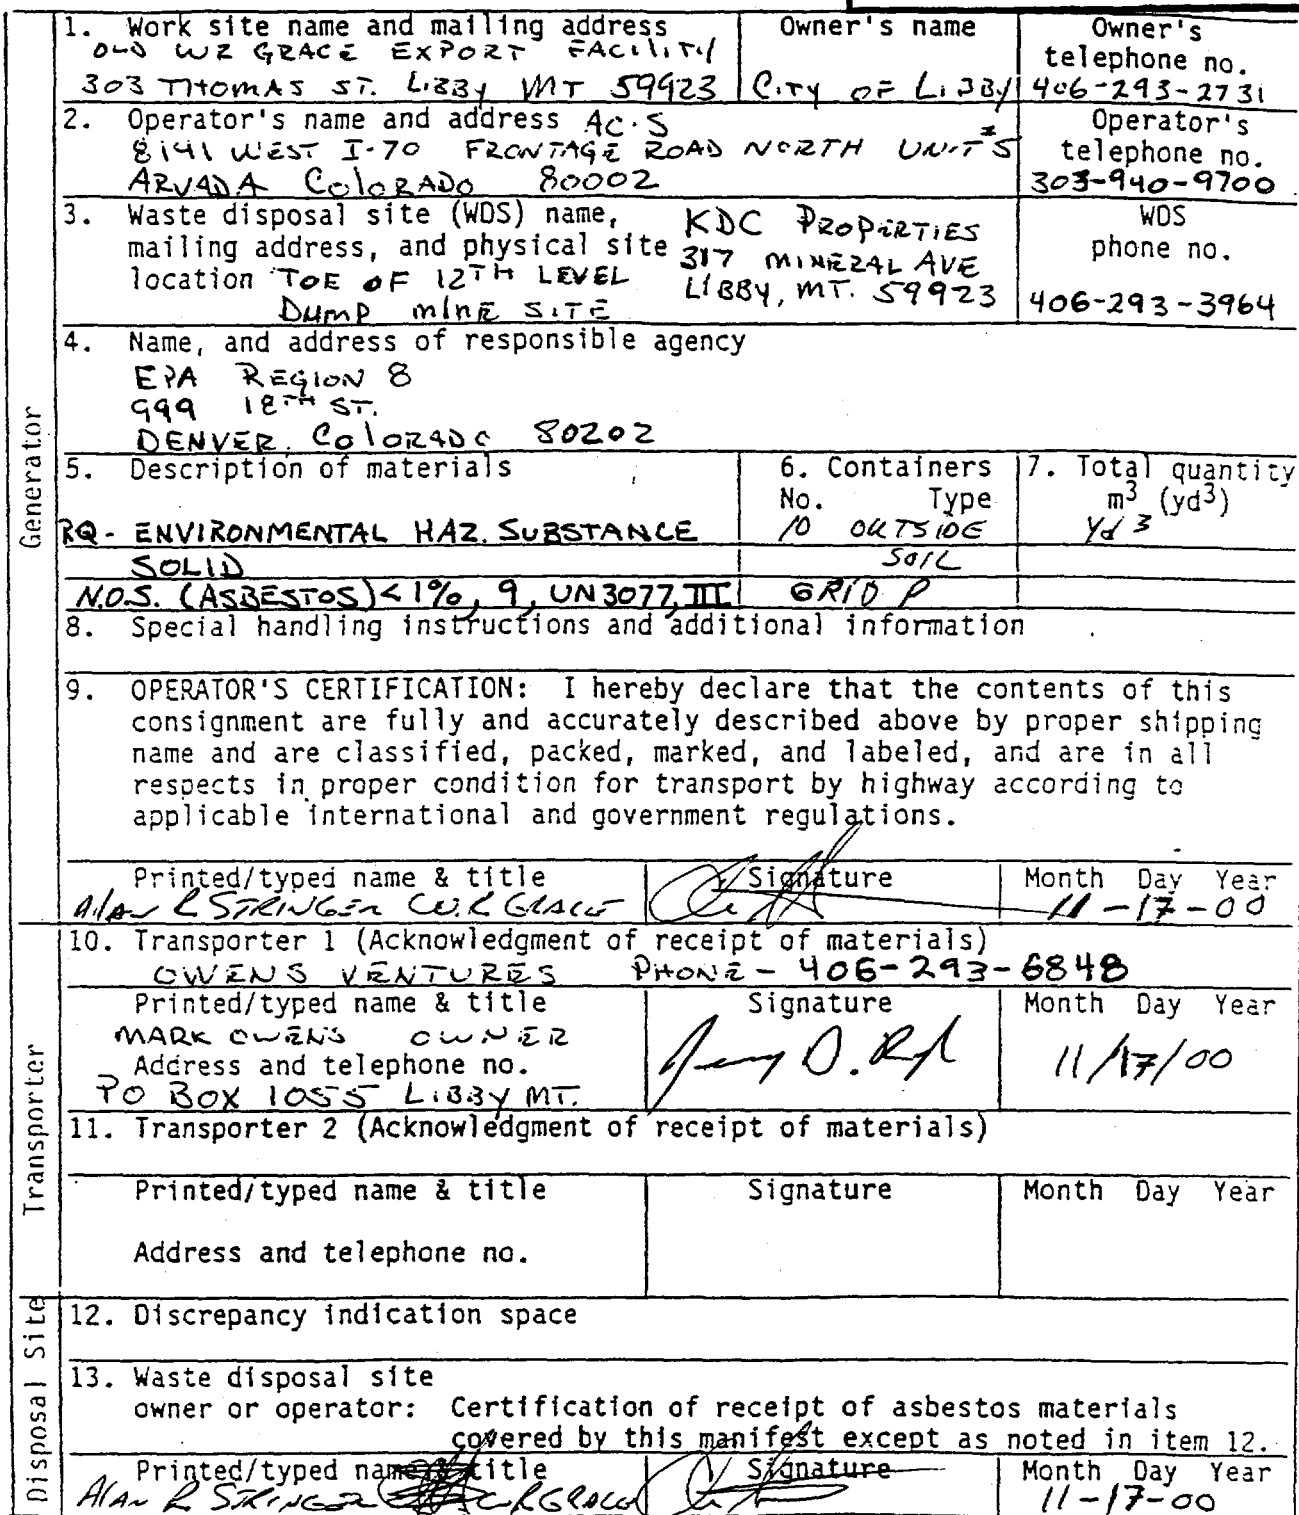 1. Work site name and mailing address
OLD WR GRACE EXPORT FACILITY
303 THOMAS ST. LIBBY MT 59923
Owner's name
CITY OF LIBBY
Owner's
telephone no.
406-293-2731
2. Operator's name and address AC.S
8141 WEST I-70 FRONTAGE ROAD NORTH UNIT # 5
ARVADA COLORADO 80002
Operator's
telephone no.
303-940-9700
3. Waste disposal site (WDS) name,
mailing address, and physical site
location TOE OF 12TH LEVEL
DUMP MINE SITE
KDC PROPERTIES
317 MINERAL AVE
LIBBY, MT. 59923
WDS
phone no.
406-293-3964
4. Name, and address of responsible agency
EPA REGION 8
999 18TH ST.
DENVER, COLORADO 80202
5. Description of materials
RQ - ENVIRONMENTAL HAZ. SUBSTANCE
SOLID
N.O.S. (ASBESTOS) < 1%, 9, UN3077, III
6. Containers
No. Type
10 OUTSIDE
SOIL
GRID P
7. Total quantity
m3 (yd3)
Yd 3
8. Special handling instructions and additional information
9. OPERATOR'S CERTIFICATION: I hereby declare that the contents of this
consignment are fully and accurately described above by proper shipping
name and are classified, packed, marked, and labeled, and are in all
respects in proper condition for transport by highway according to
applicable international and government regulations.
Printed/typed name & title
Alan R STRINGER W.R GRACE
Signature
Month Day Year
11-17-00
Generator
10. Transporter 1 (Acknowledgment of receipt of materials)
OWENS VENTURES PHONE - 406-293-6848
Printed/typed name & title
MARK OWENS OWNER
Address and telephone no.
PO BOX 1055 LIBBY MT.
Signature
Month Day Year
11/17/00
11. Transporter 2 (Acknowledgment of receipt of materials)
Printed/typed name & title
Address and telephone no.
Signature
Month Day Year
Transporter
12. Discrepancy indication space
13. Waste disposal site
owner or operator: Certification of receipt of asbestos materials
covered by this manifest except as noted in item 12.
Printed/typed name & title
Alan R STRINGER W.R GRACE
Signature
Month Day Year
11-17-00
Disposal Site